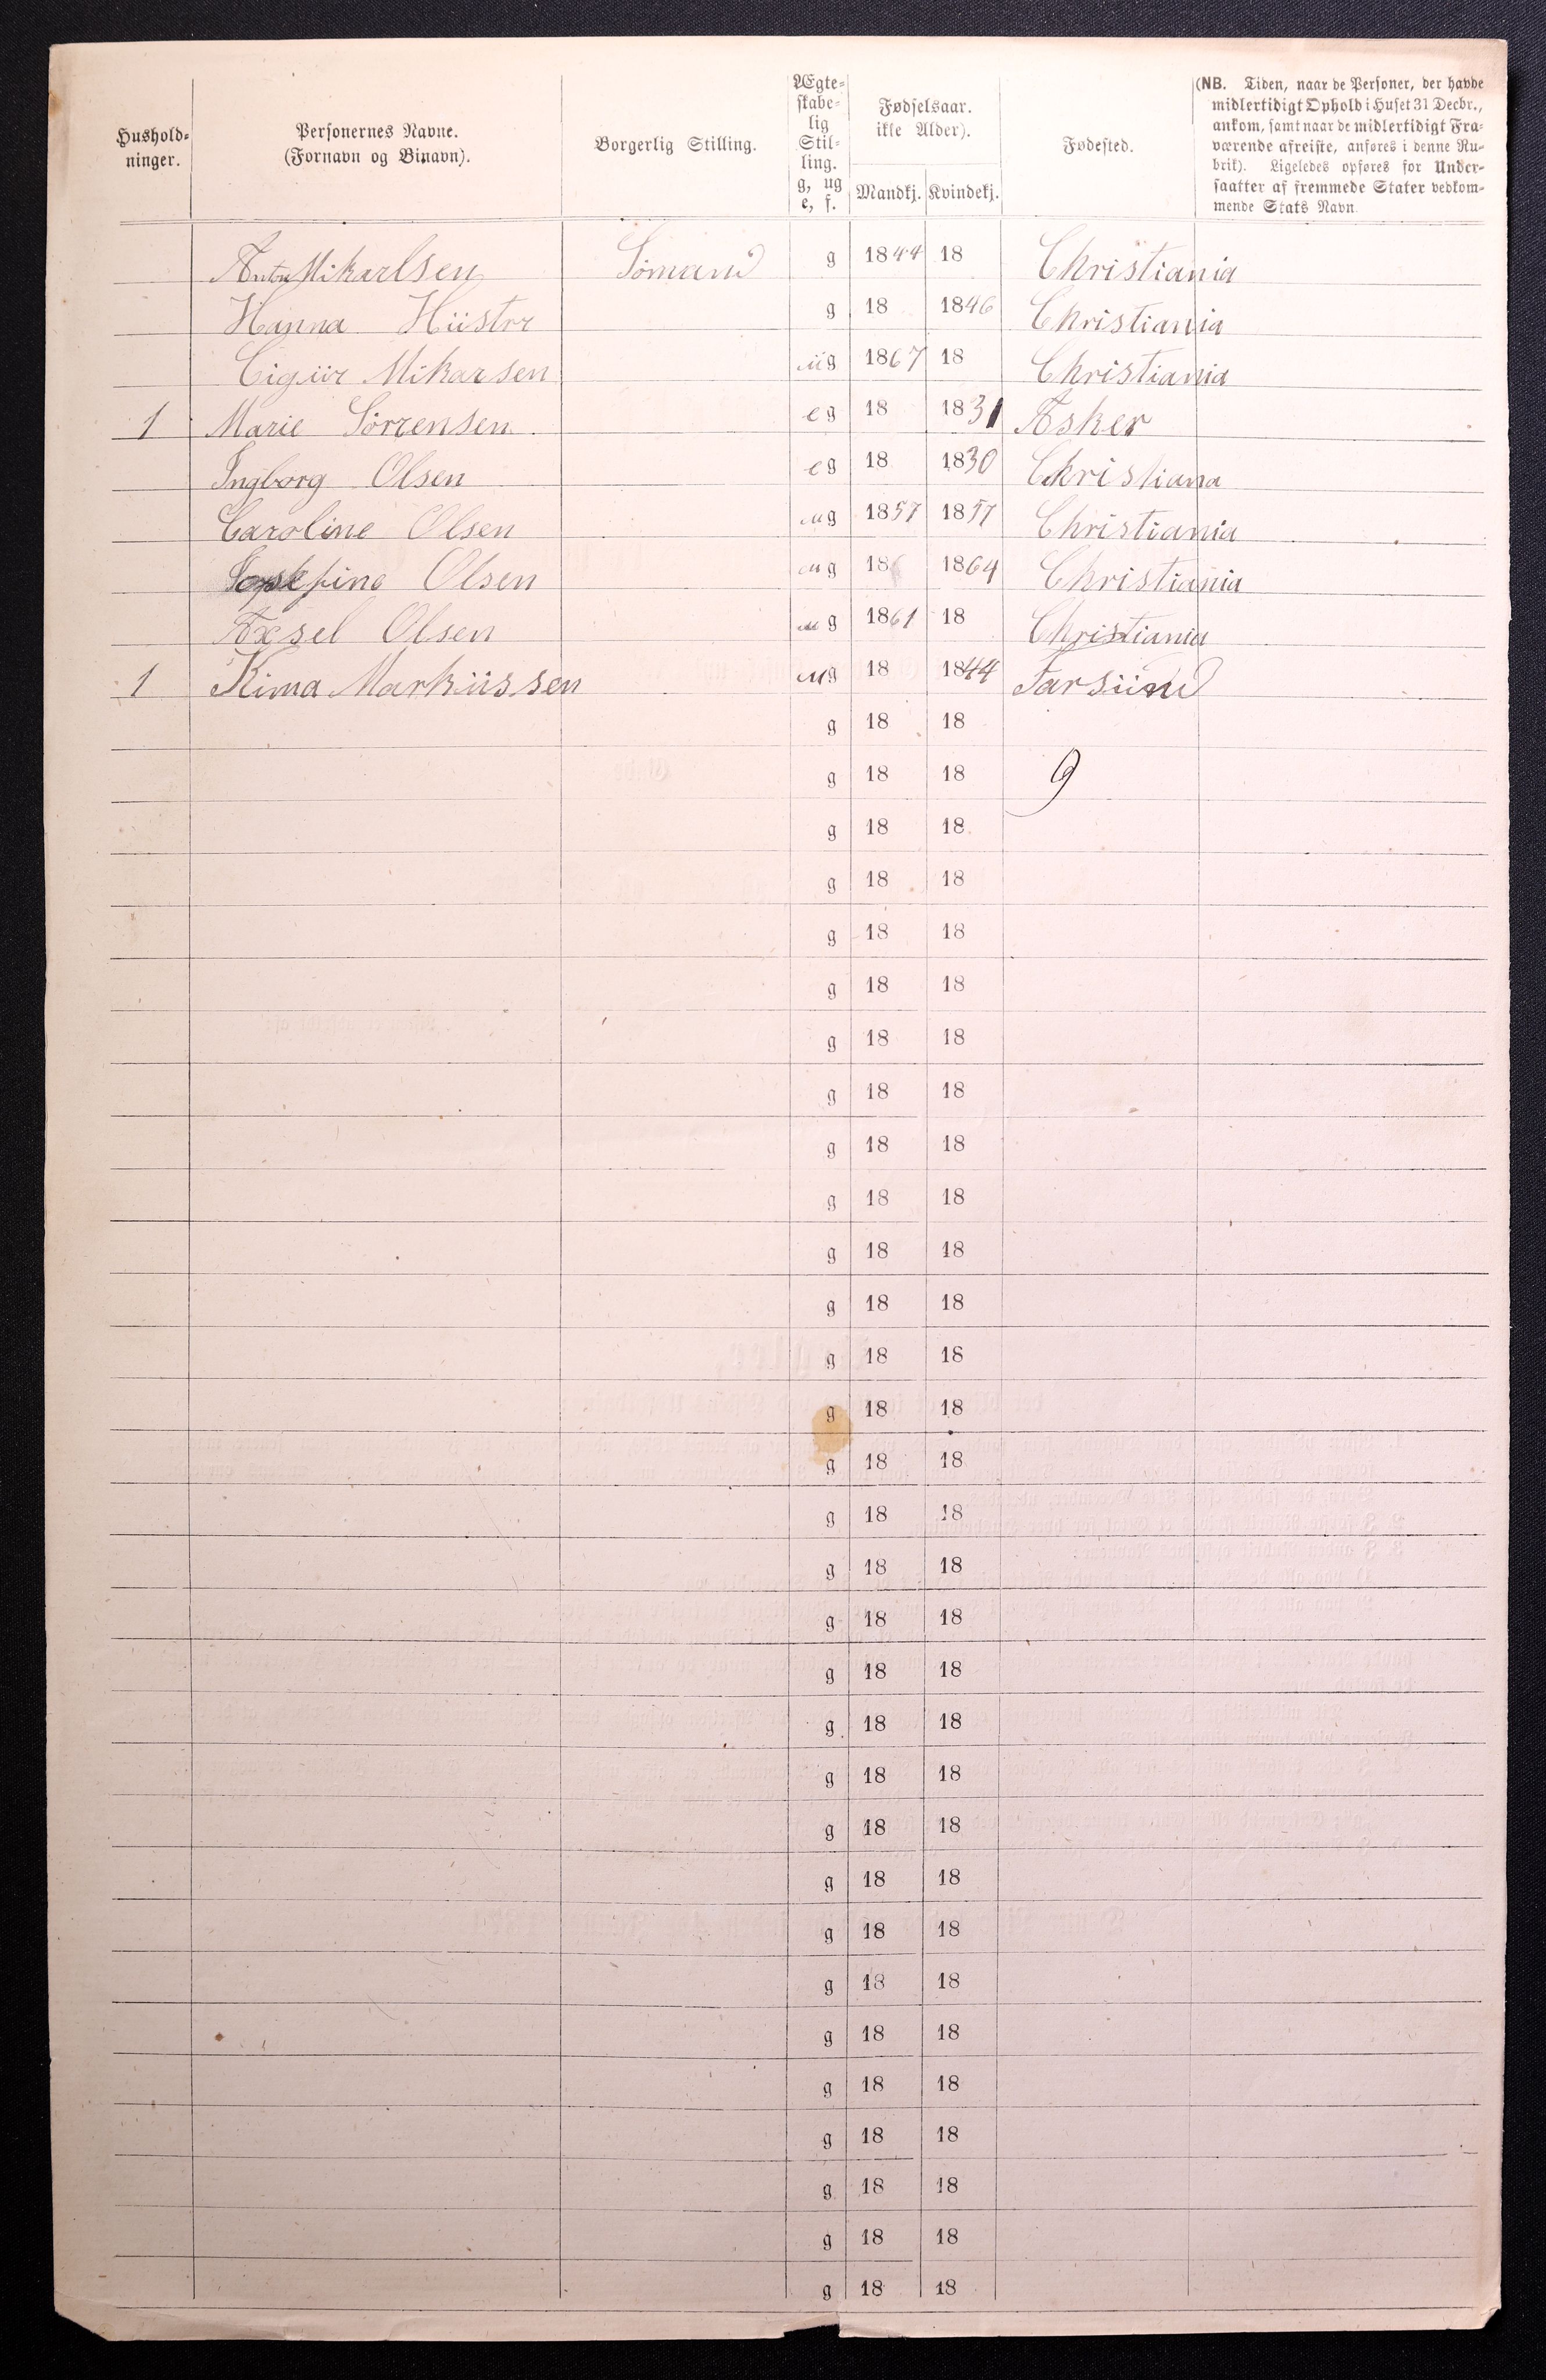 Hushold-
ninger.
Personernes Navne.
(Fornavn og Binavn).
Borgerlig Stilling.
Ægte-
skabe-
lig
Stil-
ling.
g, ug
e, f.
Fødselsaar.
ikke Alder).
Mandkj. Kvindekj.
Fødested.
(NB. Tiden, naar de Personer, der havde
midlertidigt Ophold i Huset 31 Decbr.,
ankom, samt naar de midlertidigt Fra-
værende afreiste, anføres i denne Ru-
brik). Ligeledes opføres for Under-
saatter af fremmede Stater vedkom-
mende Stats Navn.
Anton Mikarlsen Sömand g 1844 18 Christiania
Hanna Hüstrr g 18 1846 Christiania
Cigüir Mikarsen üg 1867 18 Christiania
1 Marie Sörrensen eg 18 1831 Asker
Ingborg Olsen eg 18 1830 Christiana
Caroline Olsen ug 1857 1857 Christiania
Josefine Olsen ug 186 1864 Christiania
Axsel Olsen ug 1861 18 Christiania
1 Kima Marküssen ug 18 1844 Farsünd
g 18 18
g 18 18 9
g 18 18
g 18 18
g 18 18
g 18 18
g 18 18
g 18 18
g 18 18
g 18 18
g 18 18
g 18 18
g 18 18
g 18 18
g 18 18
g 18 18
g 18 18
g 18 18
g 18 18
g 18 18
g 18 18
g 18 18
g 18 18
g 18 18
g 18 18
g 18 18
g 18 18
g 18 18
g 18 18
g 18 18
g 18 18